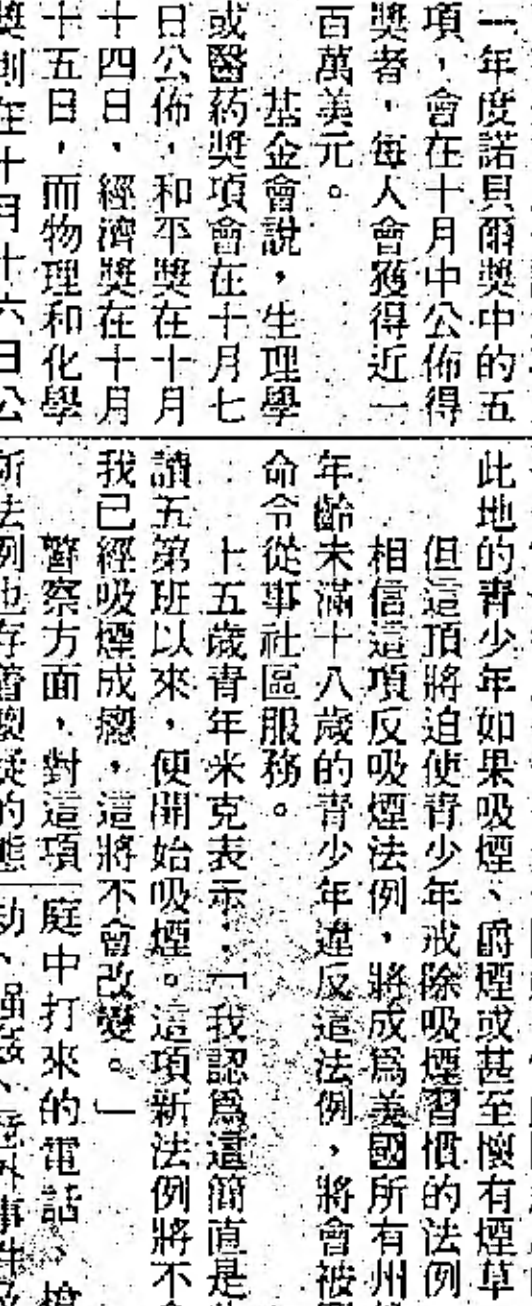 一年度諾貝爾獎中的五
項，會在十月中公佈得
獎者，每人會獲得近一
百萬美元。
基金會說，生理學
或醫葯獎項會在十月七
日公佈，和平獎在十月
十四日，經濟獎在十月
十五日，而物理和化學
獎則在十月十六日公
此地的青少年如果吸煙、爵煙或甚至懷有煙草
但這頂將迫使青少年戒除吸煙習慣的法例
相信這項反吸煙法例，將成爲美國所有州
年齡未滿十八歲的青少年違反這法例，將會被
命令從事社區服務。
十五歲青年米克表示：「我認爲這簡直是
讀五第班以來，便開始吸煙。這項新法例將不
我已經吸煙成癮，這將不會改變。」
警察方面，對這項
新法例也存着懷疑的態
庭中打來的電話、